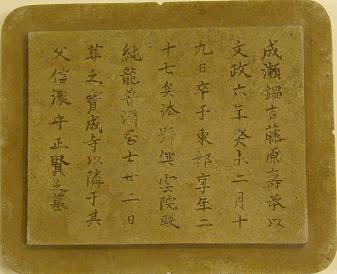 成瀬鍋吉藤原壽承以
文政六年癸未二月十
九日卒于東都享年二
十七矣添号興雲院殿
純龍普潤居士廿二日
葬之寳成寺以隣于其
父信濃守正賢之墓